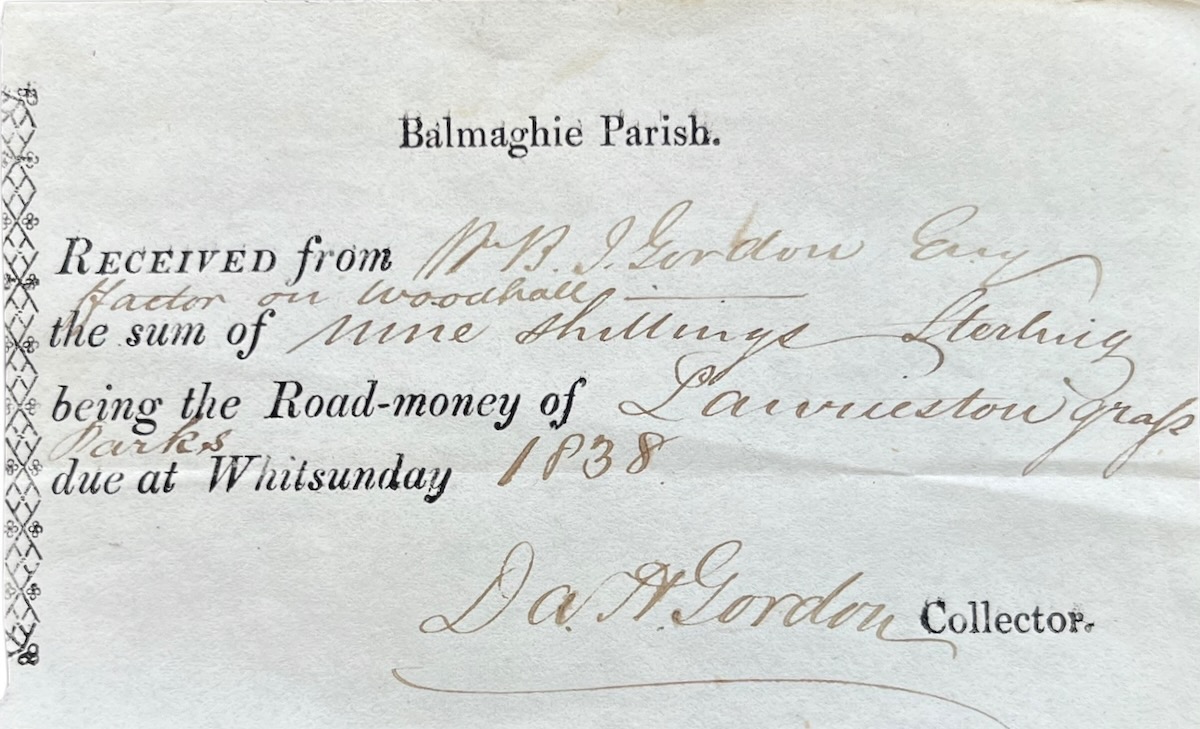 Balmaghie Parish.
RECEIVED from Wm B. J. Gordon Esq
factor on Woodhall
the sum of nine shillings Sterling
being the Road-money of Laurieston graſs
Parks
due at Whitsunday 1838.
Da. A. Gordon Collector.